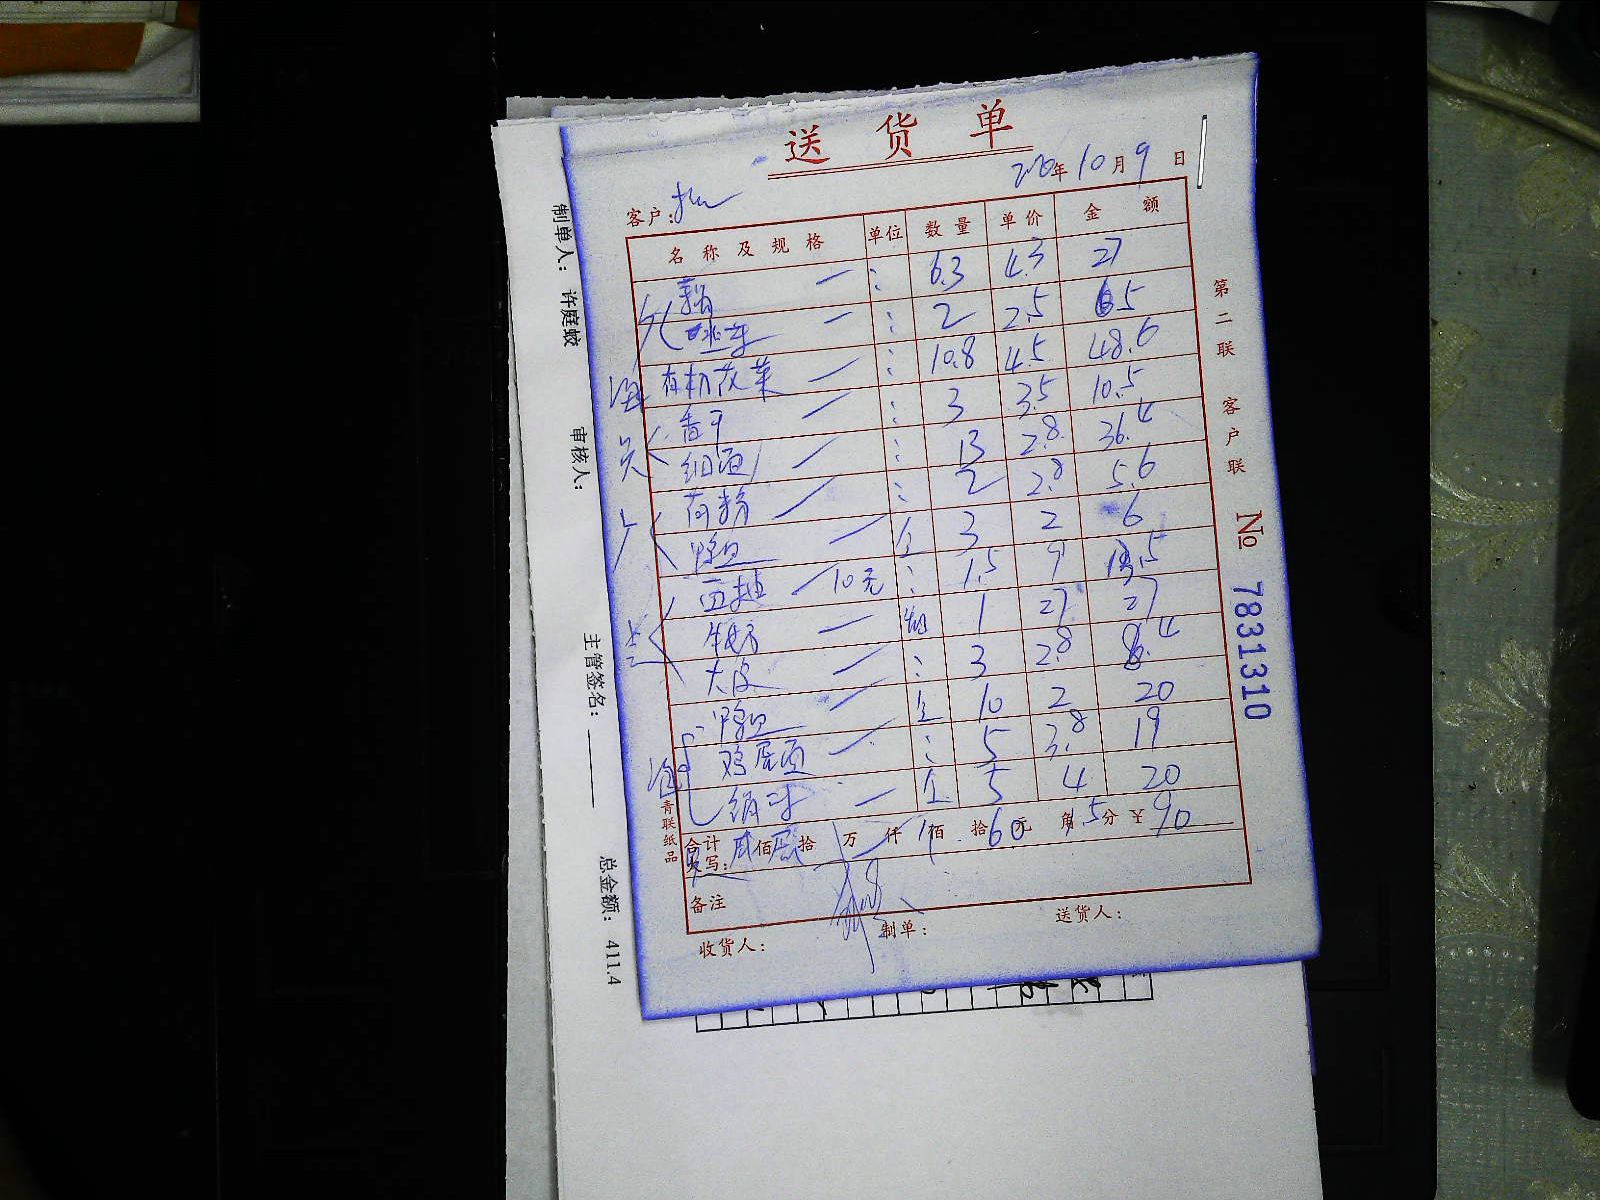 送货单
2020年10月9日
客户:
名称及规格 单位 数量 单价 金额
6.3 4.3 27
2 2.5 65
有机花菜 10.8 4.5 48.6
香干 3 3.5 10.5
细面 13 2.8 36.4
荷粉 2 2.8 5.6
鸭血 3 2 6
10元 1.5 9 13.5
1 27 27
大皮 3 2.8 8.4
鸭血 10 2 20
鸡蛋面 5 3.8 19
5 4 20
合计 佰 拾 万 仟 佰 拾 60元 角 5分 ¥ 90
大写:
备注
收货人: 制单: 送货人:
第二联 客户联
№ 7831310
青联纸品
制单人: 许庭蛟 审核人: 主管签名: 总金额: 411.4